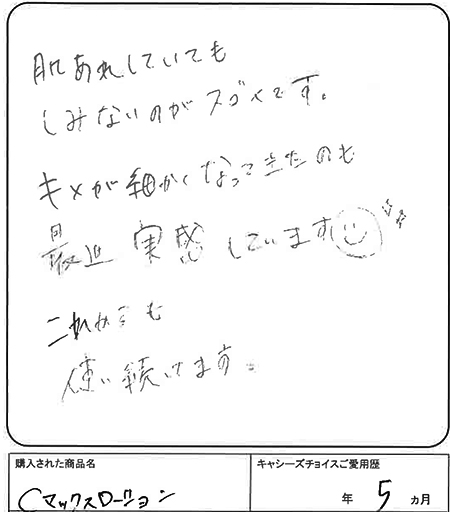 肌あれしていても
しみないのがスゴイです。
キメが細かくなってきたのも
最近 実感しています
これからも
使い続けます。
購入された商品名
キャシーズチョイスご愛用歴
Cマックスローション
年 5 ヵ月